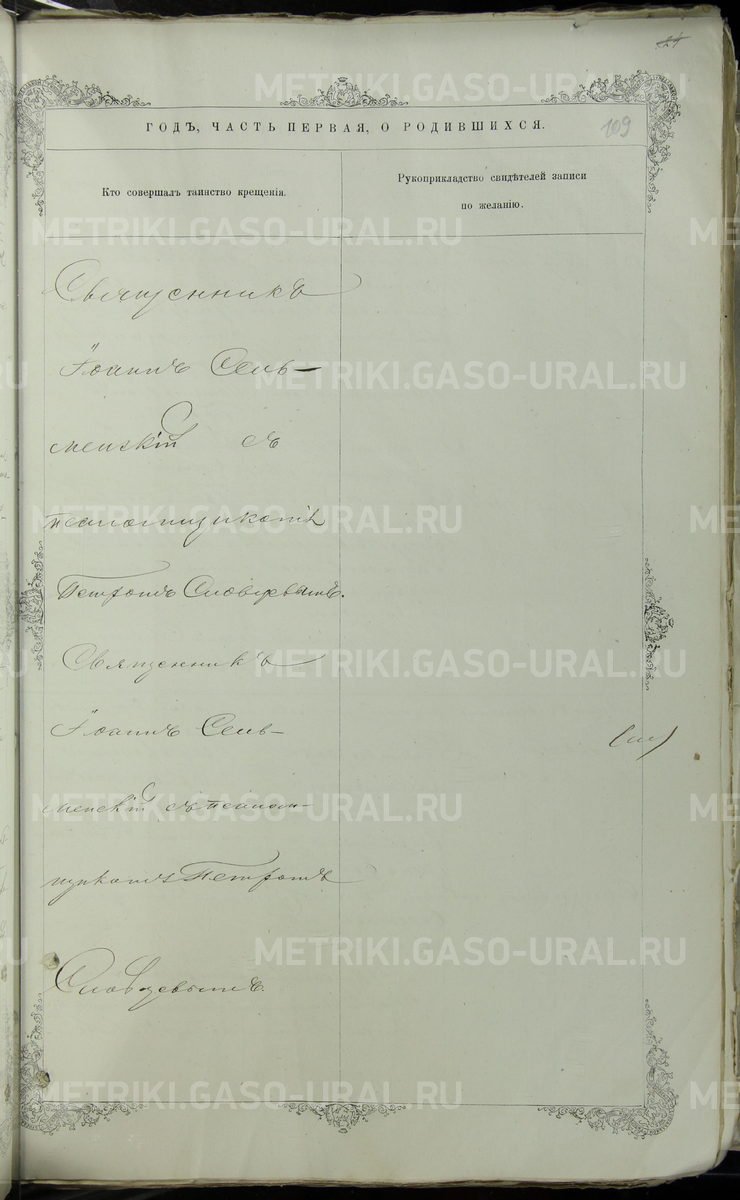 24
ГОДЪ, ЧАСТЬ ПЕРВАЯ, О РОДИВШИХСЯ.
109
Кто совершалъ таинство крещенія.
Рукоприкладство свидѣтелей записи
по желанію.
Священникъ
Іоаннъ Сель-
менскій съ
псаломщикомъ
Петромъ Словцевымъ.
Священникъ
Іоаннъ Сель-
менскій съ псалом-
щикомъ Петромъ
Словцевымъ.
METRIKI.GASO-URAL.RU